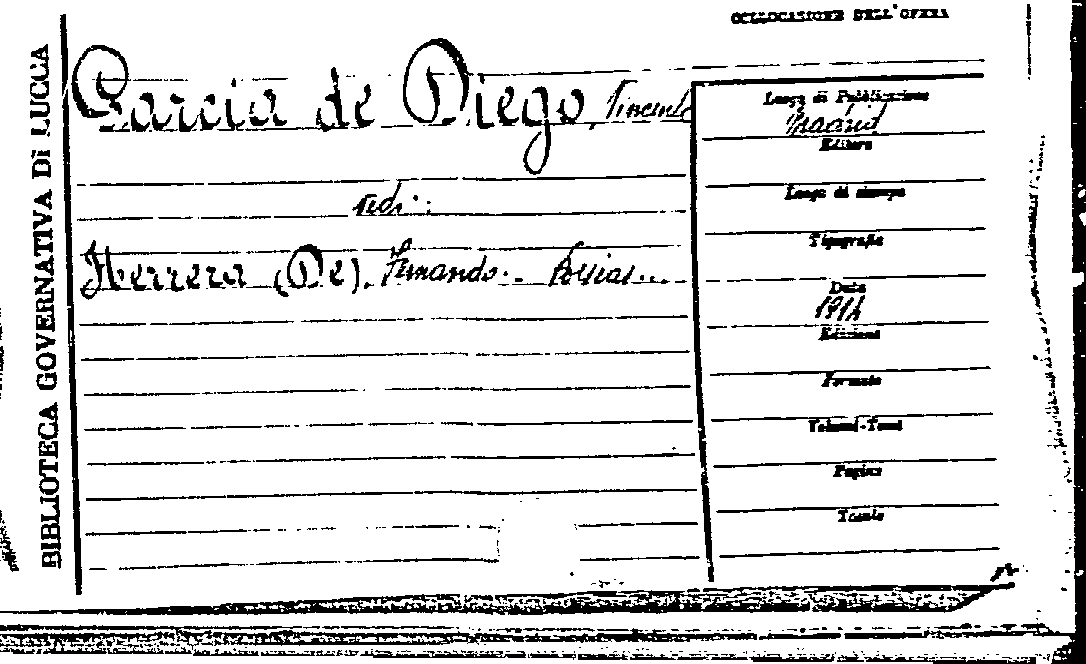 COLLOCAZIONE DELL'OPERA
BIBLIOTECA GOVERNATIVA DI LUCCA
Garcia de Diego, Vincente
vedi:
Herrera (De), Fernando.. Poesias...
Luogo di Pubblicazione
Madrid
Editore
Luogo di stampa
Tipografia
Data
1914
Edizione
Formato
Volumi-Tomi
Pagine
Tavole